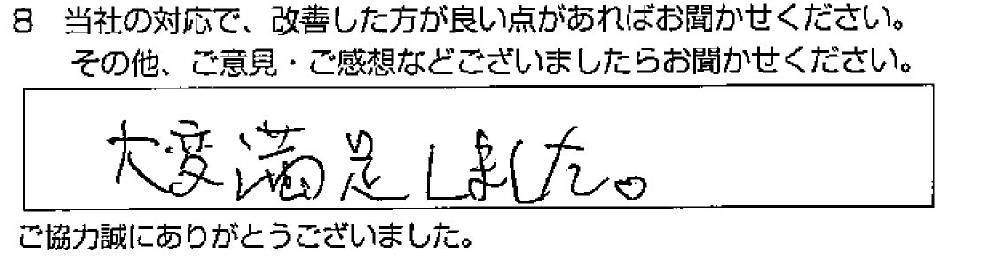 8 当社の対応で、改善した方が良い点があればお聞かせください。
その他、ご意見・ご感想などございましたらお聞かせください。
大変満足しました。
ご協力誠にありがとうございました。